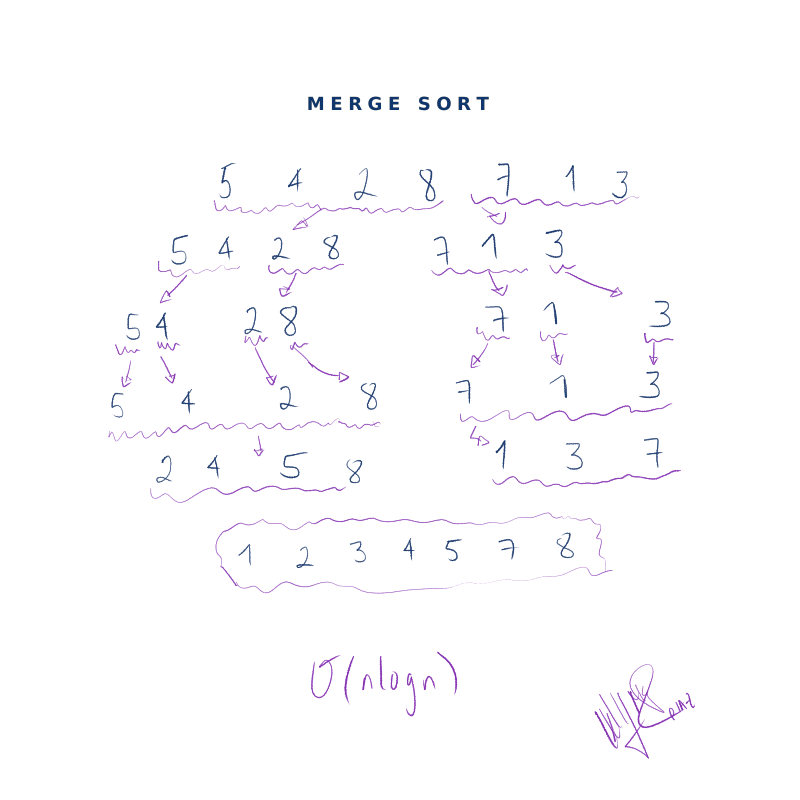 MERGE SORT
5 4 2 8 7 1 3
5 4 2 8 7 1 3
5 4 2 8 7 1 3
5 4 2 8 7 1 3
2 4 5 8 1 3 7
1 2 3 4 5 7 8
O(nlogn)